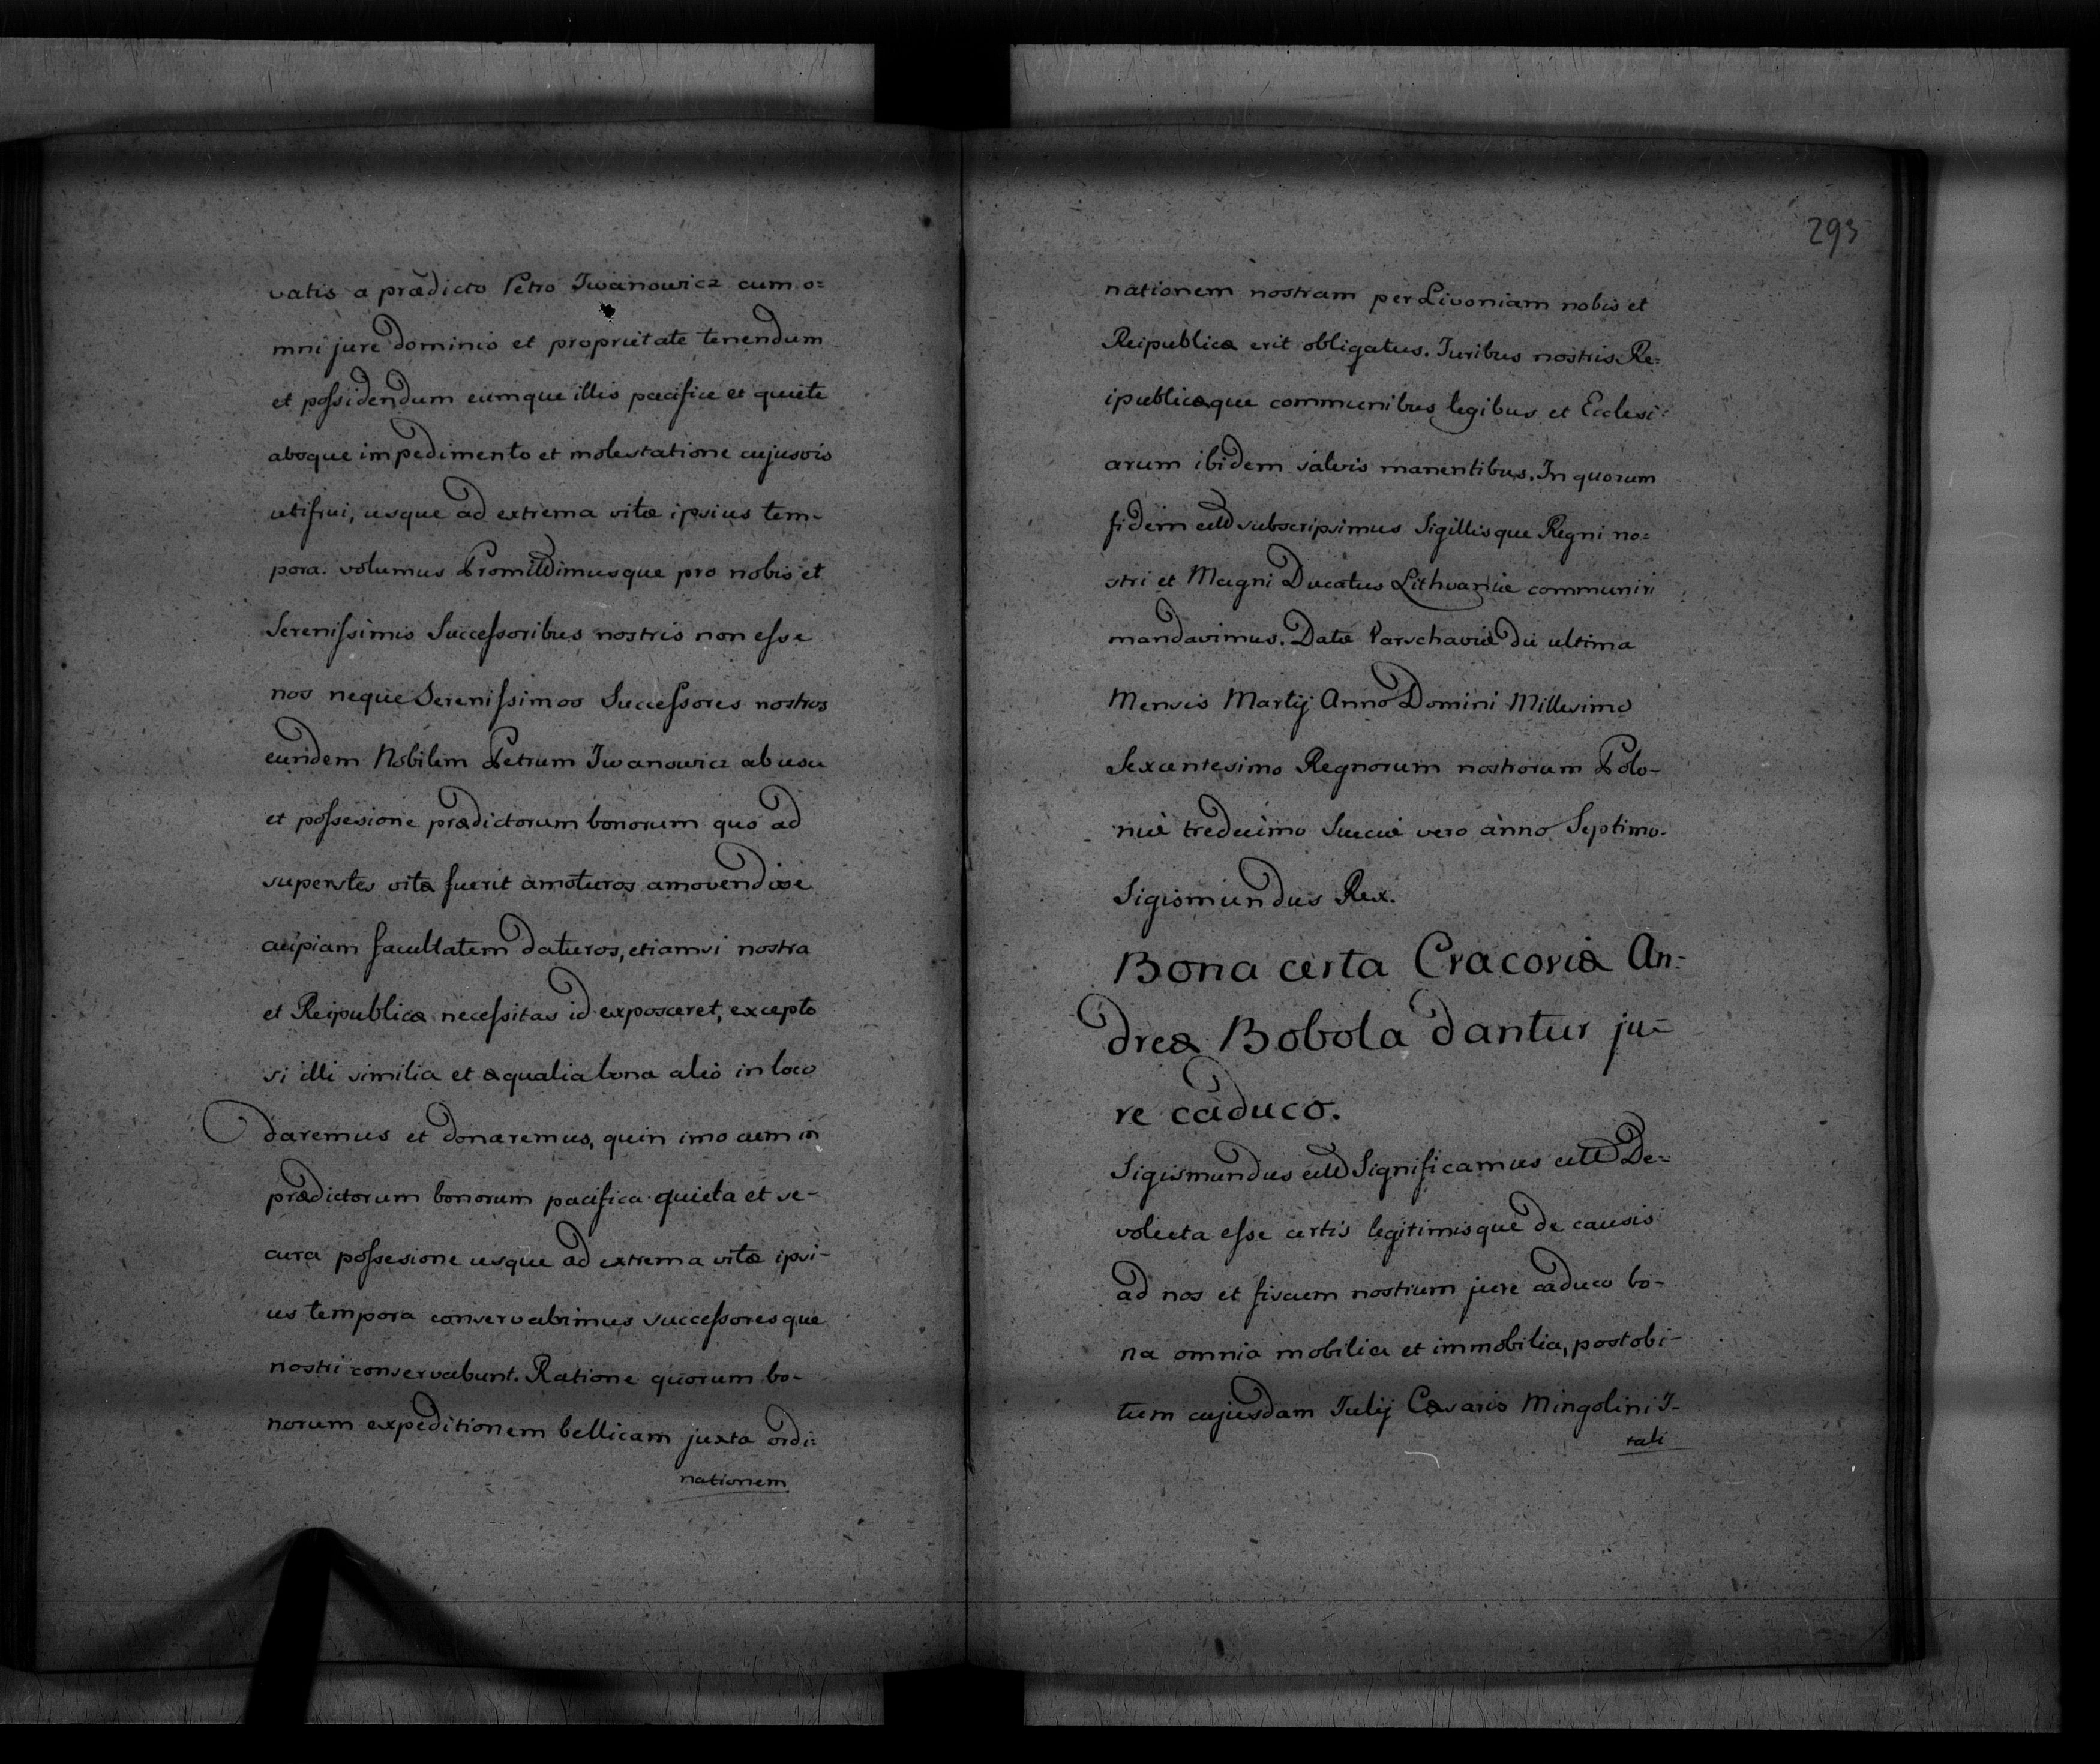 vatis a prædicto Petro Iwanowicz cum o=
mni jure dominio et proprietate tenendum
et possidendum eumque illis pacifice et quiete
absque impedimento et molestatione cujusvis
utifrui, usque ad extrema vitæ ipsius tem-
pora. volumus Promittimusque pro nobis et
Serenissimis Successoribus nostris non esse
nos neque Serenissimos Successores nostros
eundem Nobilem Petrum Iwanowicz ab usu
et possesione prædictorum bonorum quo ad
superstes vitæ fuerit amoturos amovendive
cuipiam facultatem daturos, etiamsi nostra
et Reipublicæ necessitas id exposceret, excepto
si illi similia et æqualia bona alio in loco
daremus et donaremus, quin imo eum in
prædictorum bonorum pacifica quieta et se-
cura possesione usque ad extrema vitæ ipsi-
us tempora conservabimus successoresque
nostri conservabunt. Ratione quorum bo-
norum expeditionem bellicam juxta ordi=
nationem
293
nationem nostram per Livoniam nobis et
Reipublicæ erit obligatus. Iuribus nostris Re=
ipublicæque communibus legibus et Ecclesi=
arum ibidem salvis manentibus. In quorum
fidem etc subscripsimus Sigillisque Regni no=
stri et Magni Ducatus Lithvaniæ communiri
mandavimus. Datæ Varschaviæ die ultima
Mensis Martij Anno Domini Millesimo
Sexcentesimo Regnorum nostrorum Polo-
niæ tredecimo Sueciæ vero anno Septimo.
Sigismundus Rex.
Bona certa Cracoviæ An=
dreæ Bobola dantur ju=
re caduco.
Sigismundus etc Significamus etc De=
voluta esse certis legitimisque de causis
ad nos et fiscum nostrum jure caduco bo-
na omnia mobilia et immobilia, post obi-
tum cujusdam Iulij Cæsaris Mingolini I-
tali